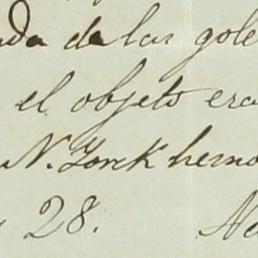 ada de las gole
el objeto era
N. Yorck hermo
28. Na